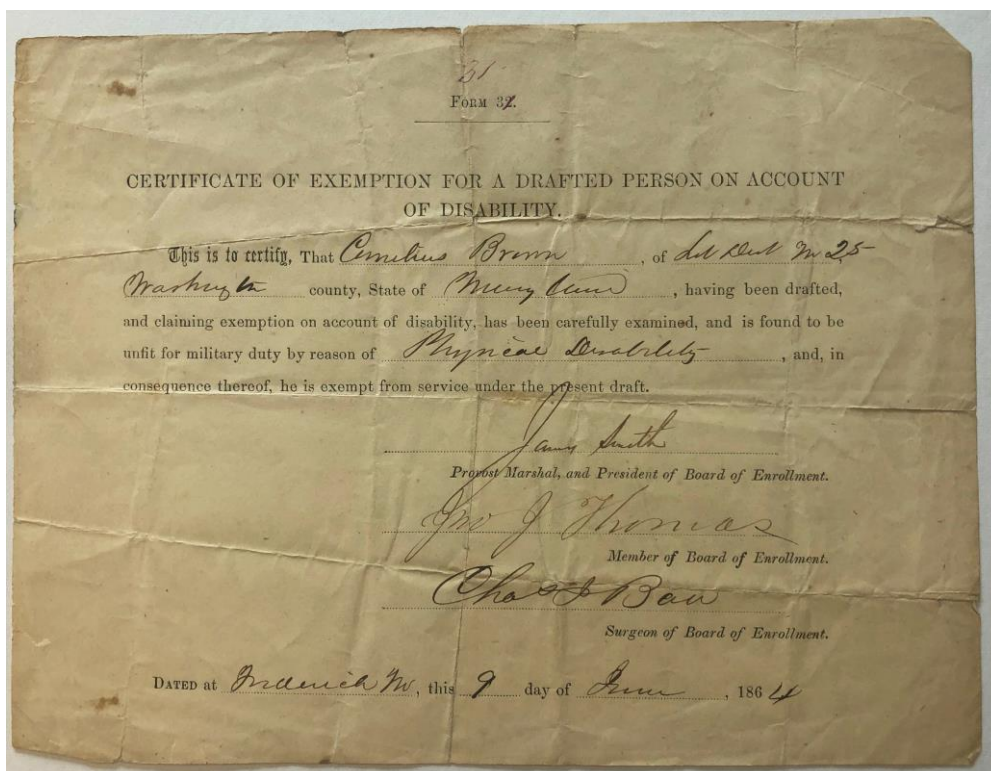 31
FORM 32.
CERTIFICATE OF EXEMPTION FOR A DRAFTED PERSON ON ACCOUNT
OF DISABILITY.
This is to certify, That Cornelius Brown, of Sub Dist No 25
Washington county, State of Maryland, having been drafted,
and claiming exemption on account of disability, has been carefully examined, and is found to be
unfit for military duty by reason of Physical Disability, and, in
consequence thereof, he is exempt from service under the present draft.
James Smith
Provost Marshal, and President of Board of Enrollment.
Jno J Thomas
Member of Board of Enrollment.
Chas
Surgeon of Board of Enrollment.
DATED at Frederick Md, this 9 day of June, 1864